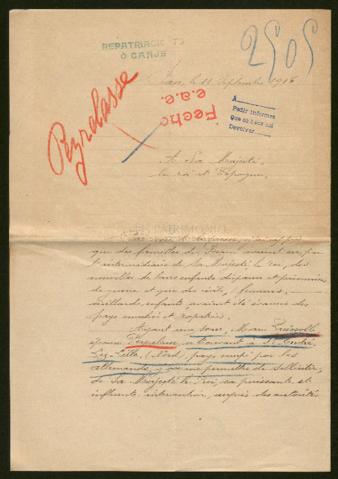 REPATRIACION
O CANJE
2505
le 11 Septembre 1916
Fecho
e.a.e.
A
Pedir informes
Devolver
Peyrelasse
A Sa Majesté,
le roi d'Espagne,
PATRIMONIO
que des familles de
l'intermédiaire de Sa Majesté le roi, des
nouvelles de leurs enfants disparus et prisonniers
de guerre et que des civils, femmes,
vieillards, enfants avaient été évacués des
pays envahis et rapatriés.
Ayant une sœur,
épouse
Lez-Lille, (Nord, pays occupé par les
allemands, je me permettre de solliciter,
de Sa Majesté le Roi, sa puissante et
influente intervention, auprès des autorités